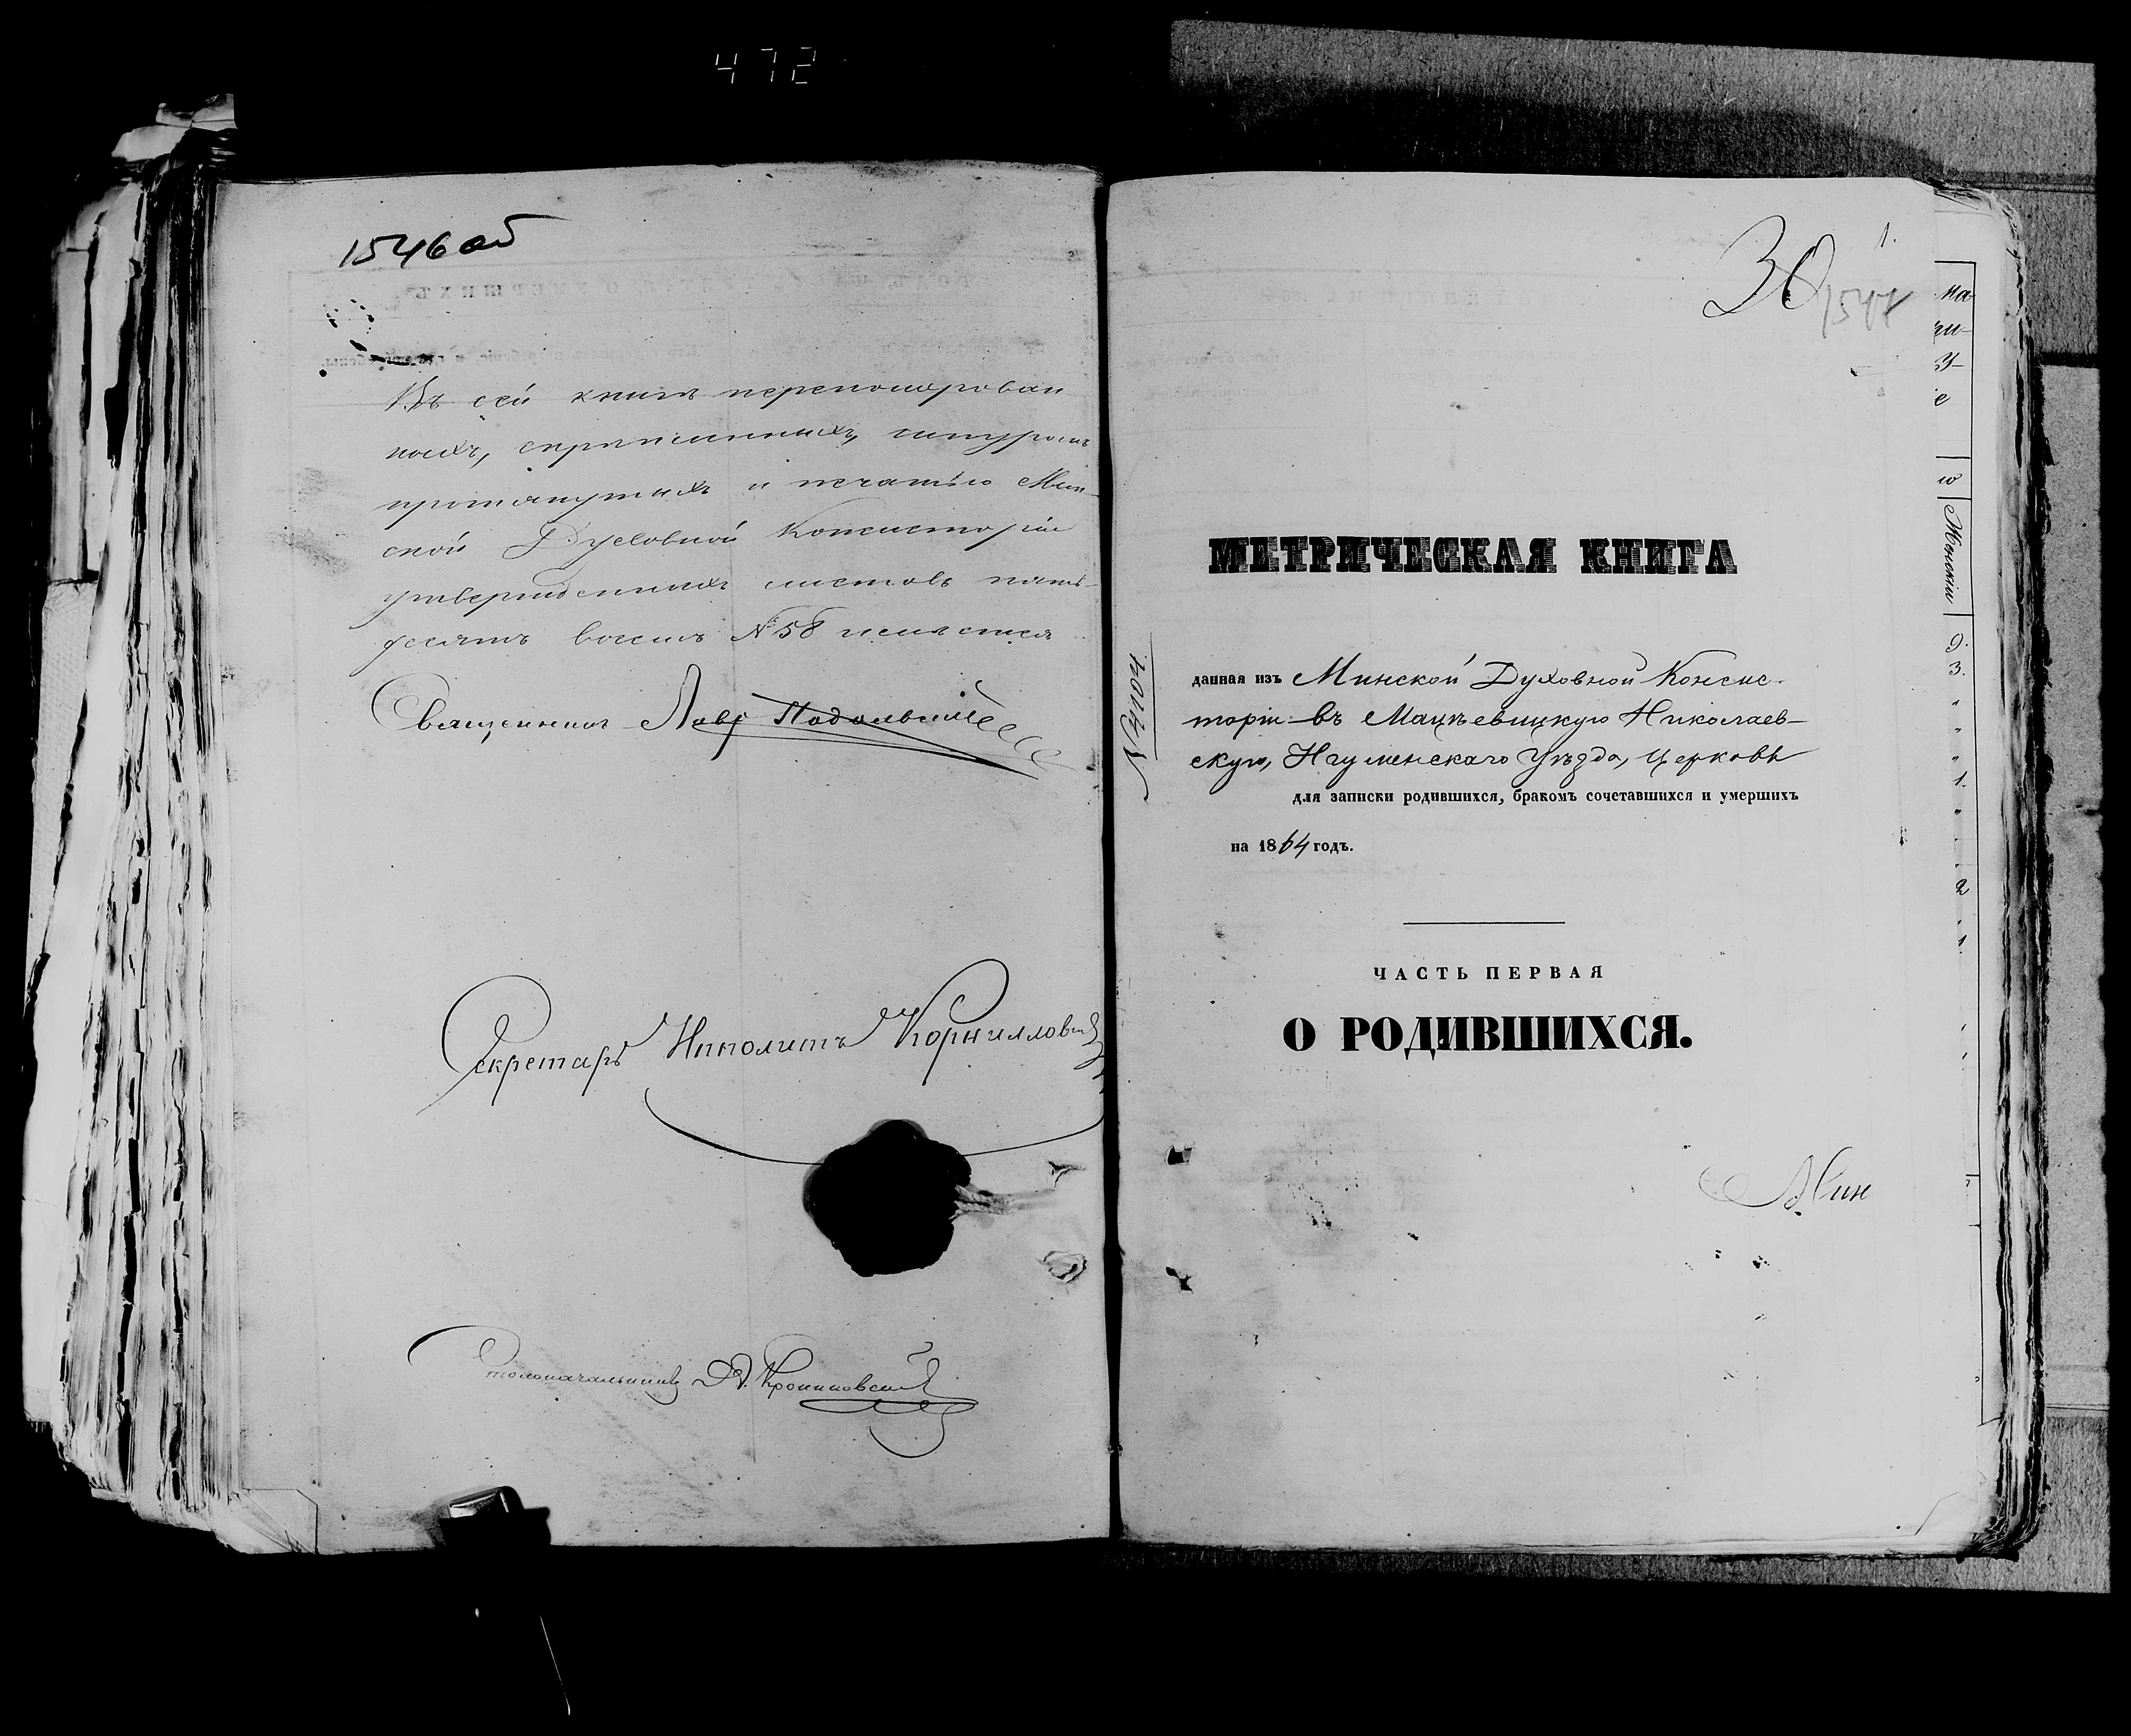 472
1546 об
Въ сей книгѣ переномерован
ныхъ, скрѣпленныхъ, шнуромъ
протянутыхъ и печатью Мин-
ской Духовной Консисторіи
утвержденныхъ листовъ пять-
десятъ восемь № 58 имѣется
Священникъ Лавр
Секретарь Ипполитъ Корниллови
Столоначальникъ
30
1.
1547
МЕТРИЧЕСКАЯ КНИГА
данная изъ Минской Духовной Консис-
торіи въ Мацѣевицкую Николаев-
скую, Игуменскаго Уѣзда, Церковь
для записки родившихся, бракомъ сочетавшихся и умершихъ
на 1864 годъ.
ЧАСТЬ ПЕРВАЯ
О РОДИВШИХСЯ.
Мин
№ 4704
на
ги-
у-
е
ю
Женскій
9.
3.
1.
2
1